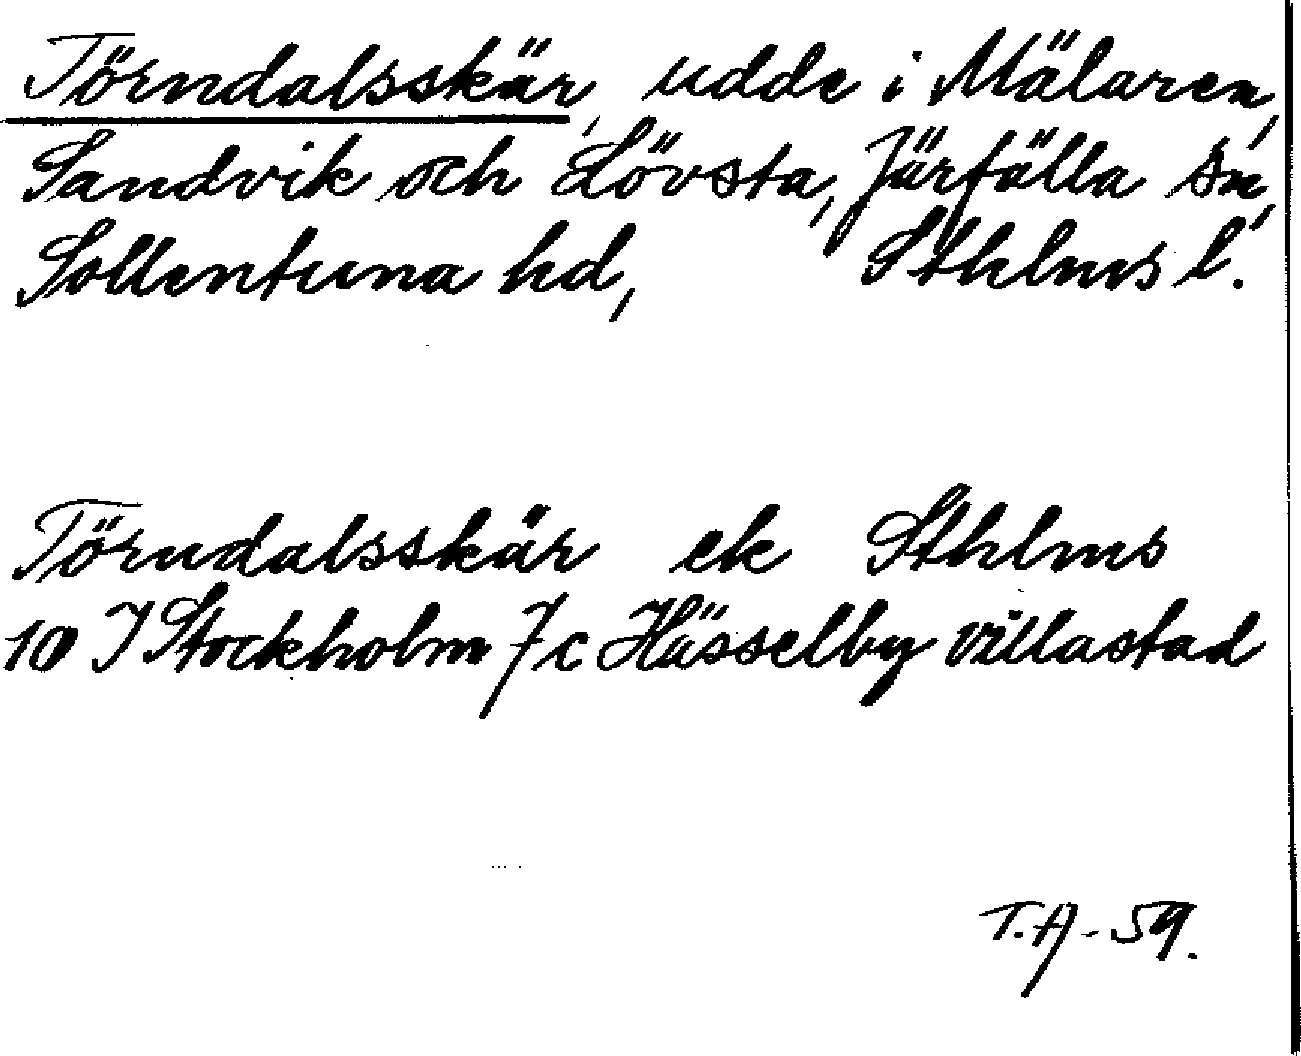 Törndalsskär, udde i Mälaren,
Sandvik och Lövsta, Järfälla sn,
Sollentuna hd, Sthlms l.
Törndalsskär ek Sthlms
10 I Stockholm 7c Hässelby villastad
T.A-59.